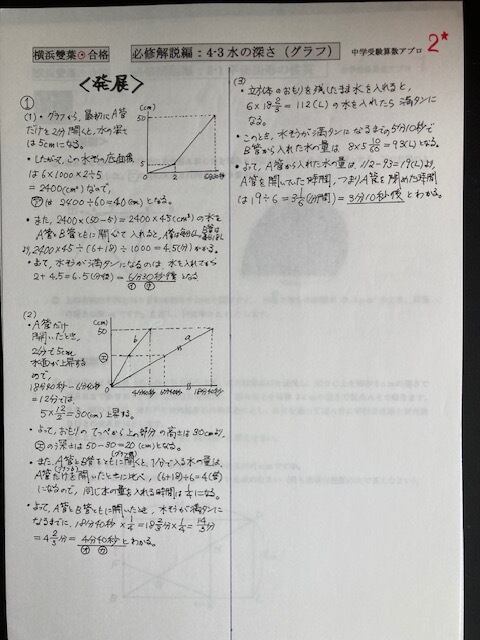 横浜雙葉⊙合格
必修解説編：4-3 水の深さ（グラフ）
中学受験算数アプロ
2*
＜発展＞
①
(1)・グラフから、最初にA管
だけを2分開くと、水の深さ
は5cmになる。
・したがって、この水そうの底面積
は6×1000×2÷5
=2400(cm²)なので、
は2400÷60=40(cm)となる。
(cm)
50
5
0
2
6分30秒
・また、2400×(50-5)=2400×45(cm³)の水を
A管とB管をともに開くで入れると、
2400×45÷(6+18)÷1000=4.5(分)かかる。
・よって、水そうが満タンになるのは、水を入れてから
2+4.5=6.5(分後)=6分30秒後となる
イ ウ
(2)
・A管だけ
開いたとき、
2分で5cm
水面が上昇する
ので、
18分40秒-6分40秒
=12分では、
5×12/2=30(cm)上昇する。
(cm)
50
エ
0
b
a
4分40秒
6分40秒
18分40秒
・よって、おもりのてっぺんから上の部分の高さは30cmより、
エの深さは50-30=20(cm)となる。
・また、A管とB管をともに開くと、1分で入る水の量は、
A管だけを開いたときに比べ、(6+18)÷6=4(倍)
になるので、同じ水の量を入れる時間は1/4になる。
・よって、A管とB管をともに開いたとき、水そうが満タンに
なるまでに、18分40秒×1/4=18 2/3分×1/4=14/3分
=4 2/3分=4分40秒とわかる。
オ カ
(3)
・立方体のおもりを残したまま水を入れると、
6×18 2/3=112(L)の水を入れたら満タンに
なる。
・このとき、水そうが満タンになるまでの5分10秒で
B管から入れた水の量は
・よって、A管から入れた水の量は、112-93=19(L)より、
A管を開いていた時間、つまりA管を閉めた時間
は19÷6=3 1/6(分間)=3分10秒後とわかる。